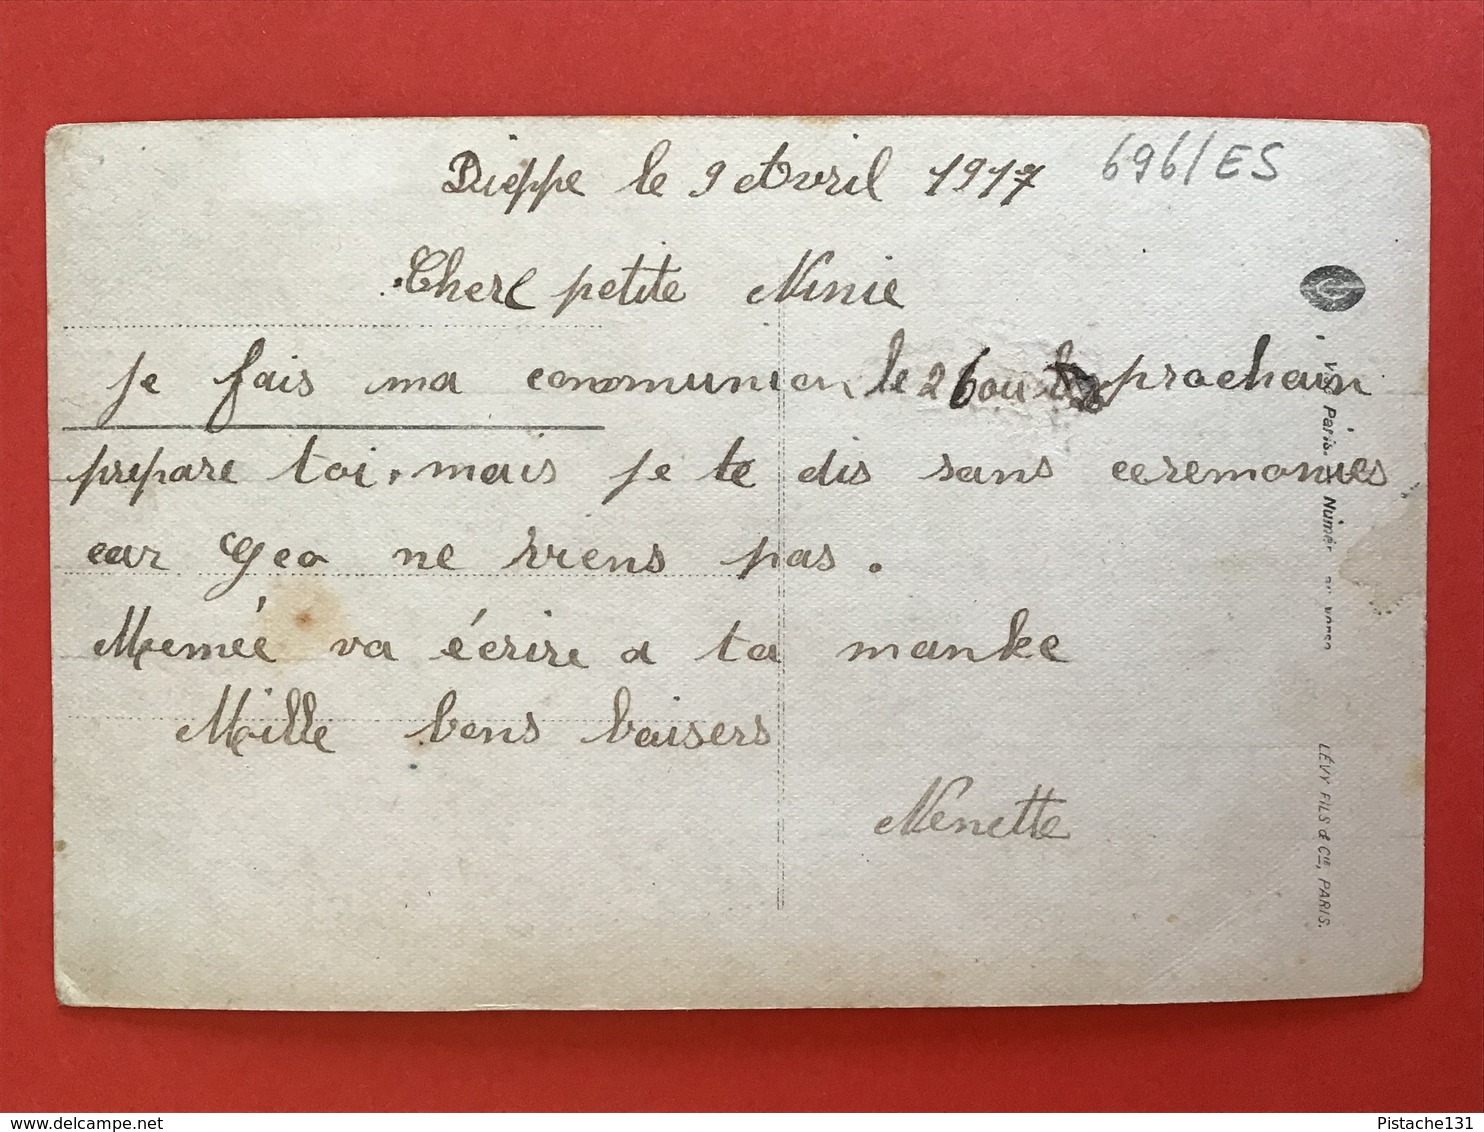 Dieppe le 9 Avril 1917
696/ES
Chere petite Ninie
je fais ma conomunion le 26 ou prochain
prepare toi, mais je te dis sans ceremonies
car Geo ne viens pas.
Memée va écrire a ta manke
Mille bons baisers
Nenette
Visé Paris. Numér
LÉVY FILS & Cie, PARIS.
delcampe.net
Pistache131